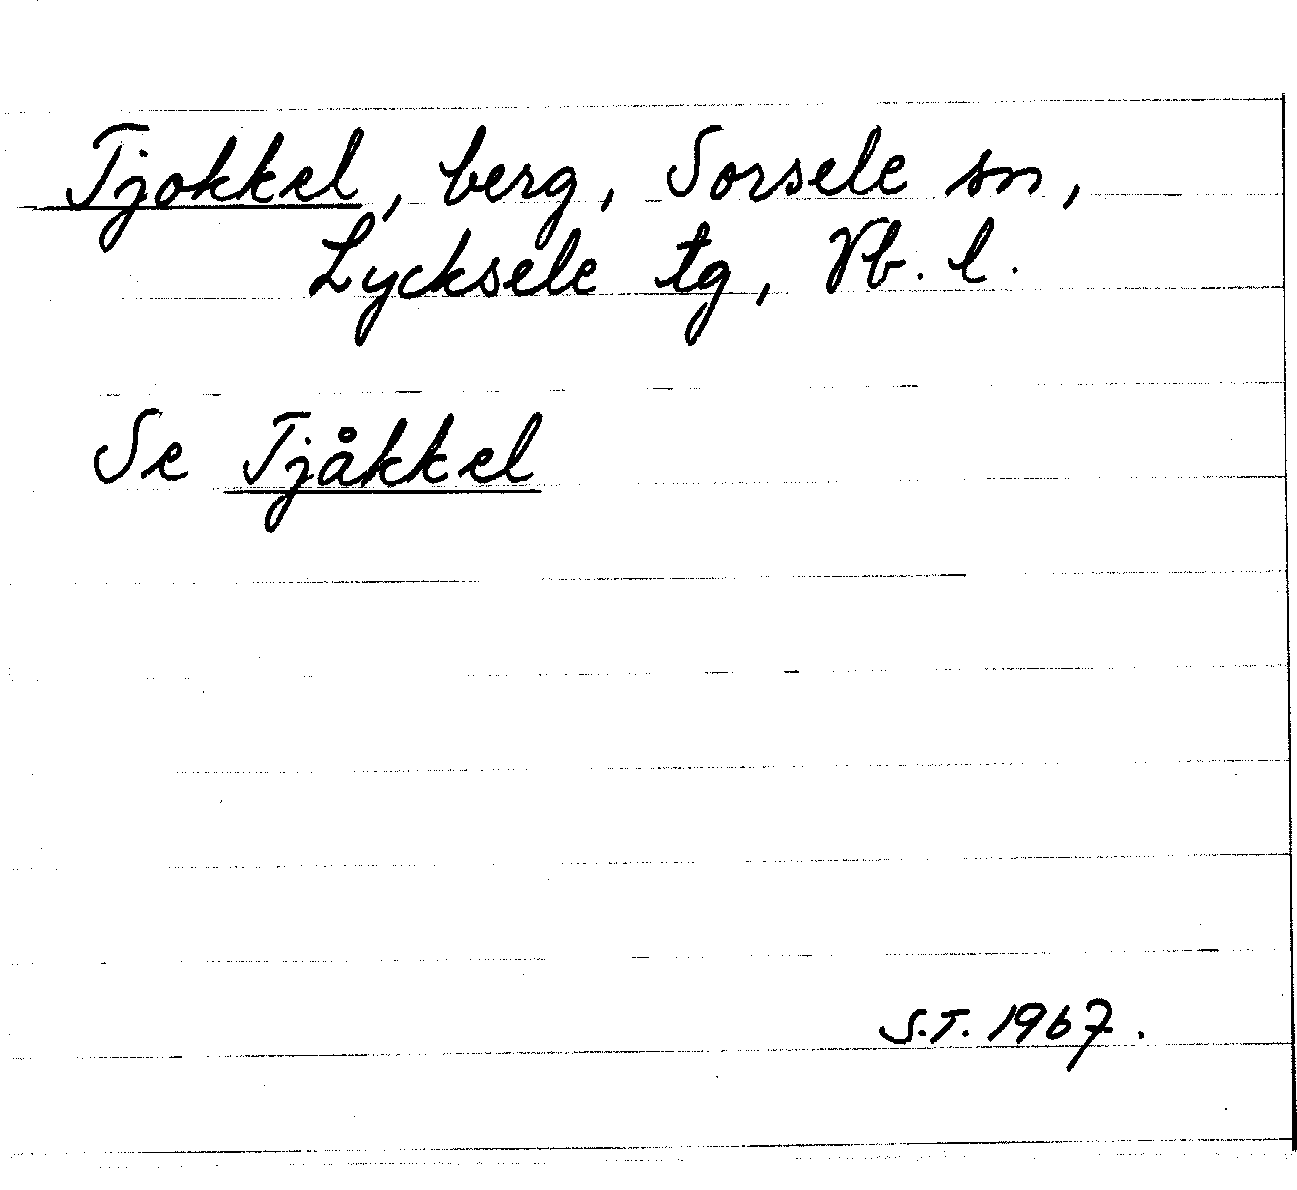 Tjokkel, berg, Sorsele sn,
Lycksele tg, Vb. l.
Se Tjåkkel
S.T. 1967.